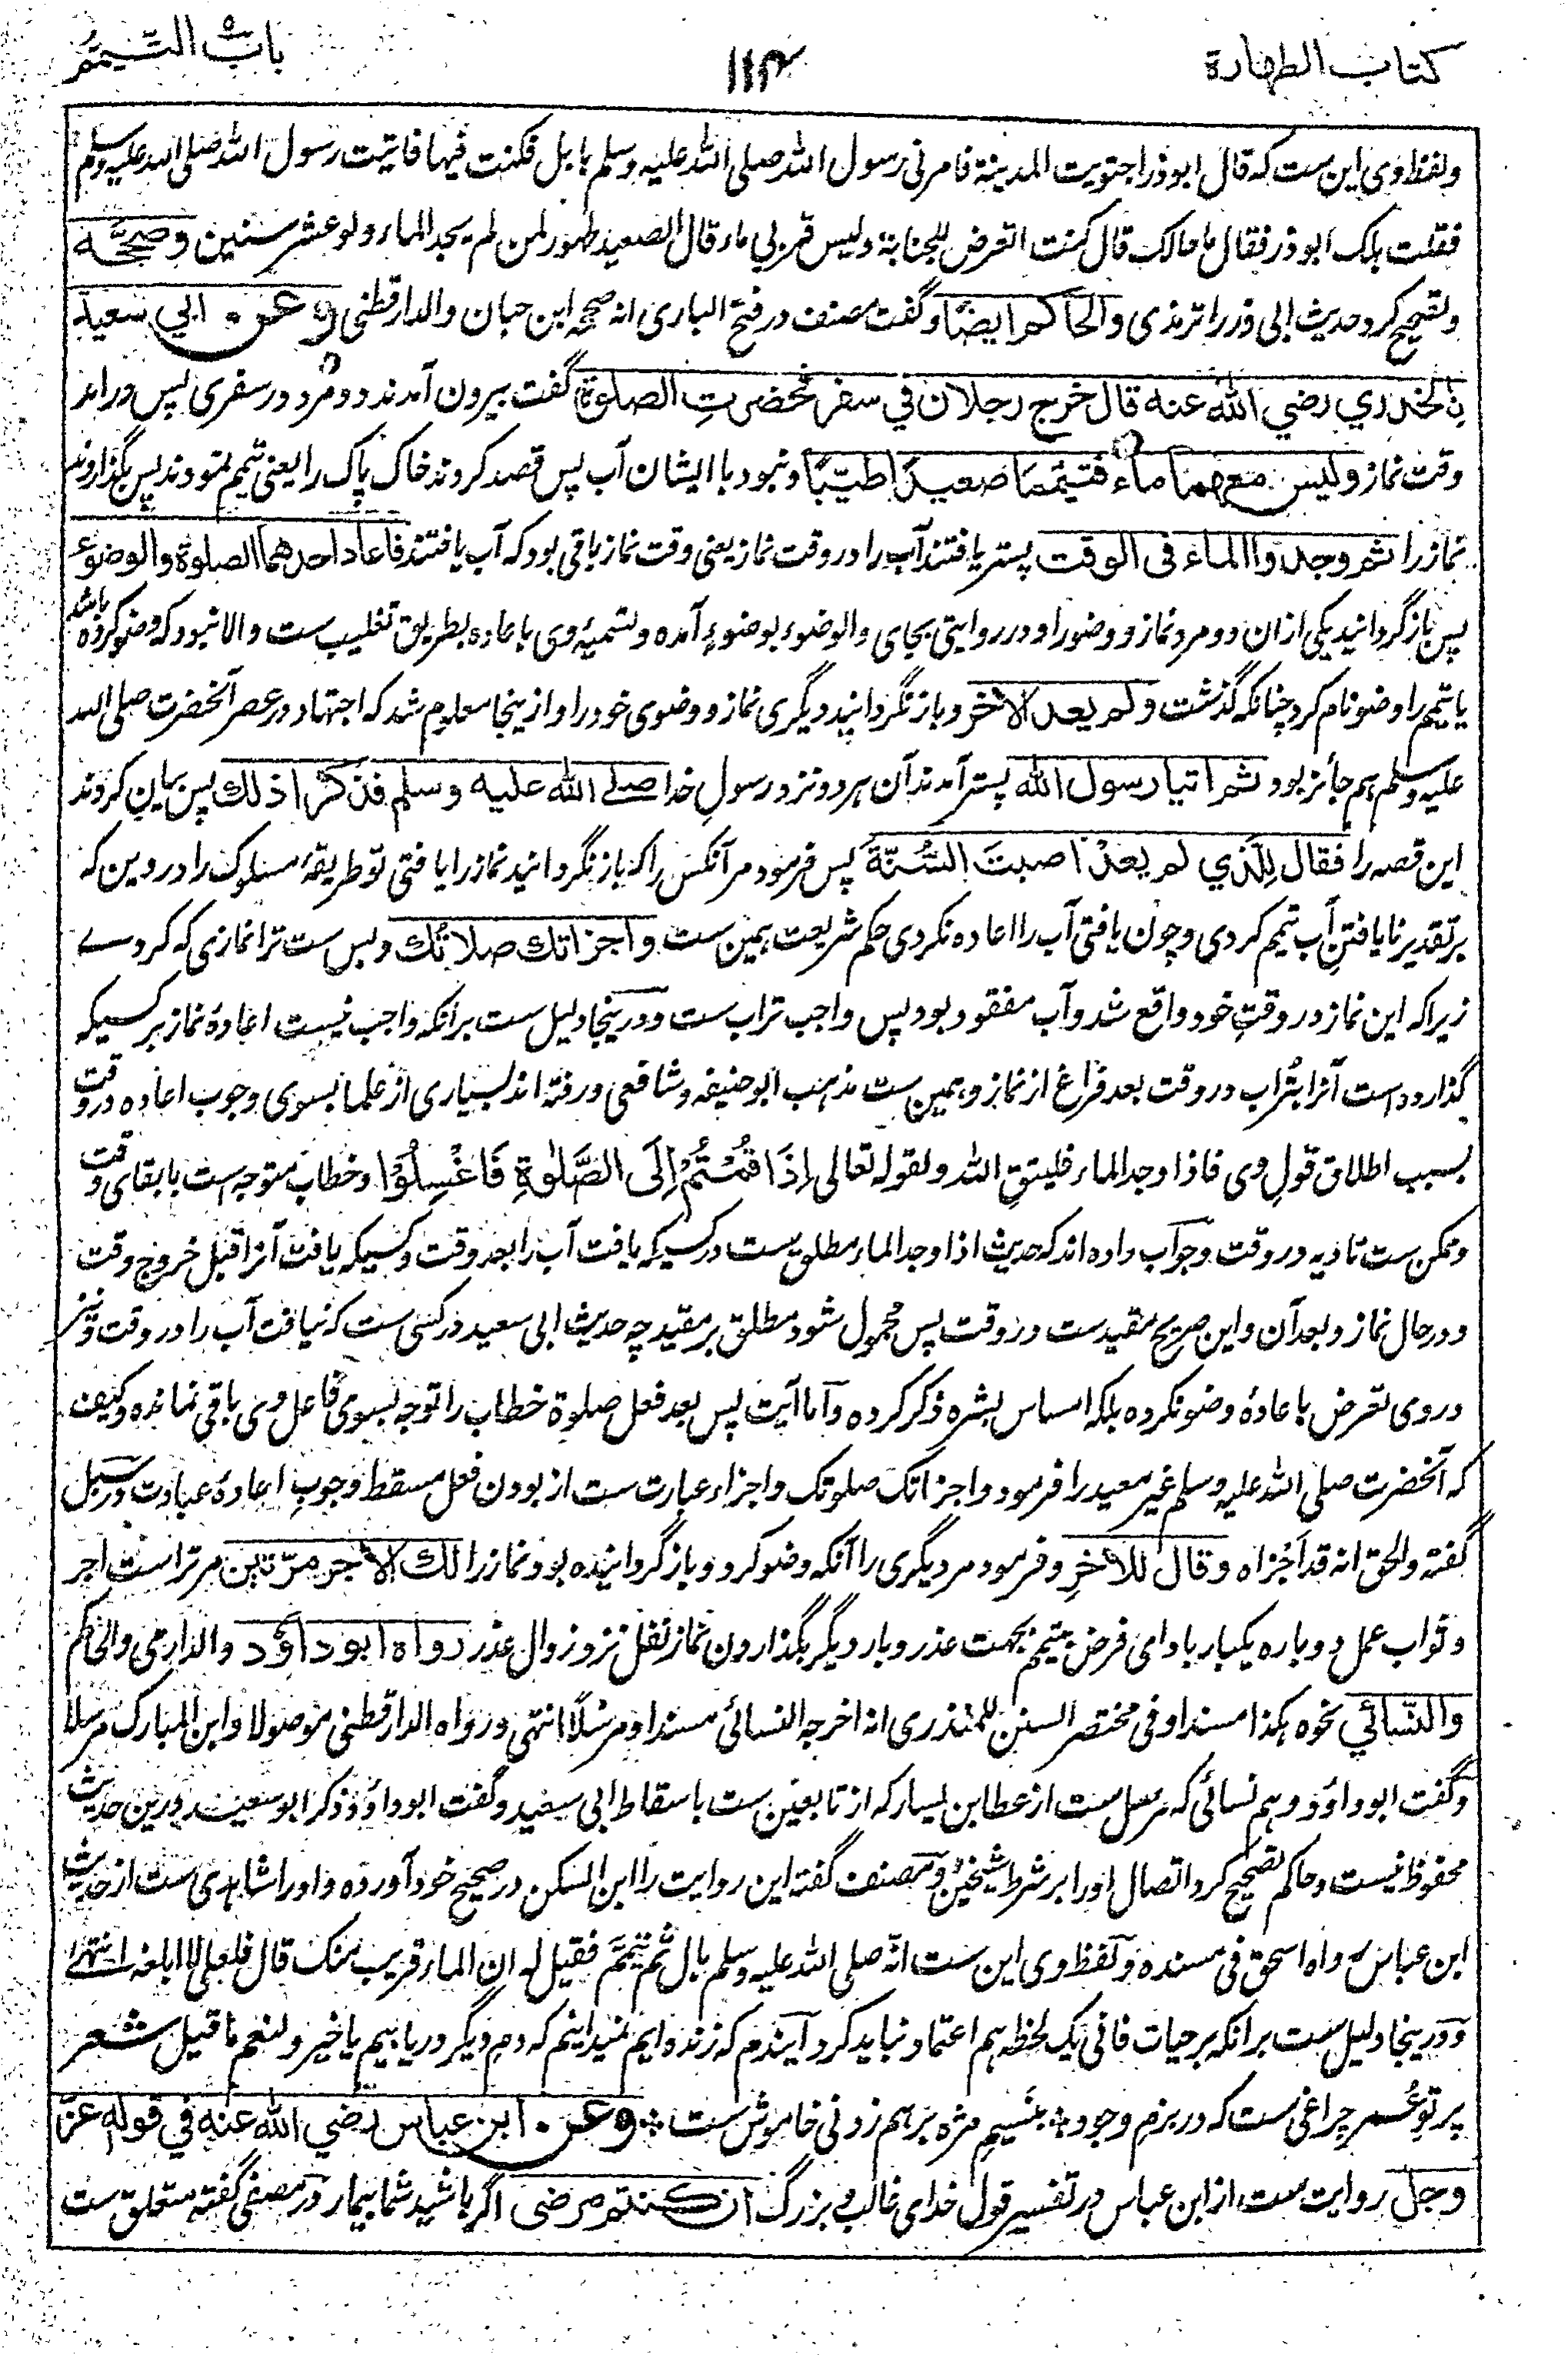 كتاب الطهارة
۱۱۴
باب التيمم
ولفظ وی این ست که قال ابوذر اجتویت المدینة فامرنی رسول الله صلی الله علیه وسلم بابل فکنت فیها فاتیت رسول الله صلی الله علیه وسلم
فقلت هلک ابوذر فقال ما حالک قال کنت اتعرض للجنابة ولیس قربی ماء قال الصعید طهور لمن لم یجد الماء ولو عشر سنین وصححه
وتصحیح کرد حدیث ابی ذر را ترمذی والحاکم ایضًا وگفت مصنف در فتح الباری انه صححه ابن حبان والدارقطنی وعن ابي سعید
ن الخدري رضي الله عنه قال خرج رجلان في سفر فحضرتِ الصلوة گفت بیرون آمدند دو مرد در سفری پس درامد
وقت نماز ولیس معهما ماء فتیمما صعیدًا طیبًا ونبود با ایشان آب پس قصد کردند خاک پاک را یعنی تیمم نمودند پس بگذاردند
نماز را ثم وجدوا الماء فی الوقت پستر یافتند آب را در وقت نماز یعنی وقت نماز باقی بود که آب یافتند فاعاد احدهما الصلوة والوضوء
پس بازگردانید یکی ازان دو مرد نماز و وضو را و در روایتی بجای والوضوء بوضوءٍ آمده وتسمیۀ وی باعاده بطریق تغلیب ست والا نبود که وضو کرده باشد
یا تیمم را وضو نام کرد چنانکه گذشت ولم یعد الاخر وباز نگردانید دیگری نماز و وضوی خود را و ازینجا معلوم شد که اجتهاد در عصر آنحضرت صلی الله
علیه وسلم هم جائز بود ثم اتیا رسول الله پستر آمدند آن هردو نزد رسولِ خدا صلے الله علیه وسلم فذکرا ذلك پس بیان کردند
این قصه را فقال لِلّذي لم یعدْ اصبتَ السُّنّةَ پس فرمود مر آنکس را که باز نگردانید نماز را یافتی تو طریقۀ مسلوک را در دین که
بر تقدیر نایافتنِ آب تیمم کردی وچون یافتی آب را اعاده نکردی حکم شریعت همین ست واجزاتك صلاتُك وبس ست ترا نمازی که کردے
زیرا که این نماز در وقتِ خود واقع شد وآب مفقود بود پس واجب تراب ست ودرینجا دلیل ست برانکه واجب نیست اعادۀ نماز بر کسیکه
گذارده است آنرا بتُراب در وقت بعد فراغ از نماز وهمین ست مذهب ابوحنیفه وشافعی ورفته اند بسیاری از علما بسوی وجوب اعاده در وقت
بسبب اطلاق قولِ وی فاذا وجد الماء فلیتقِ الله ولقوله تعالی اِذَا قُمْتُمْ اِلَی الصَّلٰوةِ فَاغْسِلُوْا وخطاب متوجه است با بقای وقت
وممکن ست تادیه در وقت وجواب داده اند که حدیث اذا وجد الماء مطلق ست در کسیکه یافت آب را بعد وقت وکسیکه یافت آنرا قبل خروج وقت
ودر حال نماز وبعد آن واین صریح مقیدست در وقت پس محمول شود مطلق بر مقید چه حدیث ابی سعید در کسی ست که نیافت آب را در وقت ونیز
در وی تعرض باعادۀ وضو نکرده بلکه امساس بشره ذکر کرده واما آیت پس بعد فعل صلوة خطاب را توجه بسوی فاعل وی باقی نمانده وکیف
که آنحضرت صلی الله علیه وسلم غیر معید را فرمود واجزاتک صلوتک واجزاء عبارت ست از بودن فعل مسقط وجوبِ اعادۀ عبادت ودر سبل
گفته والحق انه قد اَجْزاه وقال للاٰخرِ وفرمود مر دیگری را آنکه وضو کرد و بازگردانیده بود نماز را لك الاجر مرّتین مر تراست اجر
وثواب عمل دوباره یکبار بادای فرض بتیمم بجهت عذر وبار دیگر بگذاردن نماز نفل نزد زوال عذر رواه ابوداؤد والدارمی والحاکم
والنّسائي نحوه هکذا مسندا وفی مختصر السنن للمنذری انه اخرجه النسائی مسندا ومرسلًا انتهی ورواه الدارقطنی موصولا وابن المبارک مرسلا
وگفت ابوداؤد وهم نسائی که مرسل ست از عطا بن یسار که از تابعین ست باسقاط ابی سعید وگفت ابوداؤد ذکر ابوسعید درین حدیث
محفوظ نیست وحاکم تصحیح کرد اتصال او را بر شرط شیخین ومصنف گفته این روایت را ابن السکن در صحیح خود آورده واورا شاهدی ست از حدیث
ابن عباس رواه اسحق فی مسنده ولفظ وی این ست انّه صلی الله علیه وسلم بال ثم تیمَّم فقیل له ان الماء قریب منک قال فلعلی لا ابلغه انتهے
ودرینجا دلیل ست برانکه بر حیات فانی یک لحظه هم اعتماد نباید کرد آیندم که زنده ایم نمیدانیم که دمِ دیگر دریابیم یا خیر ولنعم ما قیل شعر
پرتوِ عُمر چراغی ست که در بزم وجود ؛ بنسیمِ مژه برهم زدنی خاموش ست ؛ وعن ابن عباس رضي الله عنه في قوله عزّ
وجل روایت ست از ابن عباس در تفسیر قول خدای غالب وبزرگ ان کنتم مرضی اگر باشید شما بیمار در مصفی گفته متعلق ست